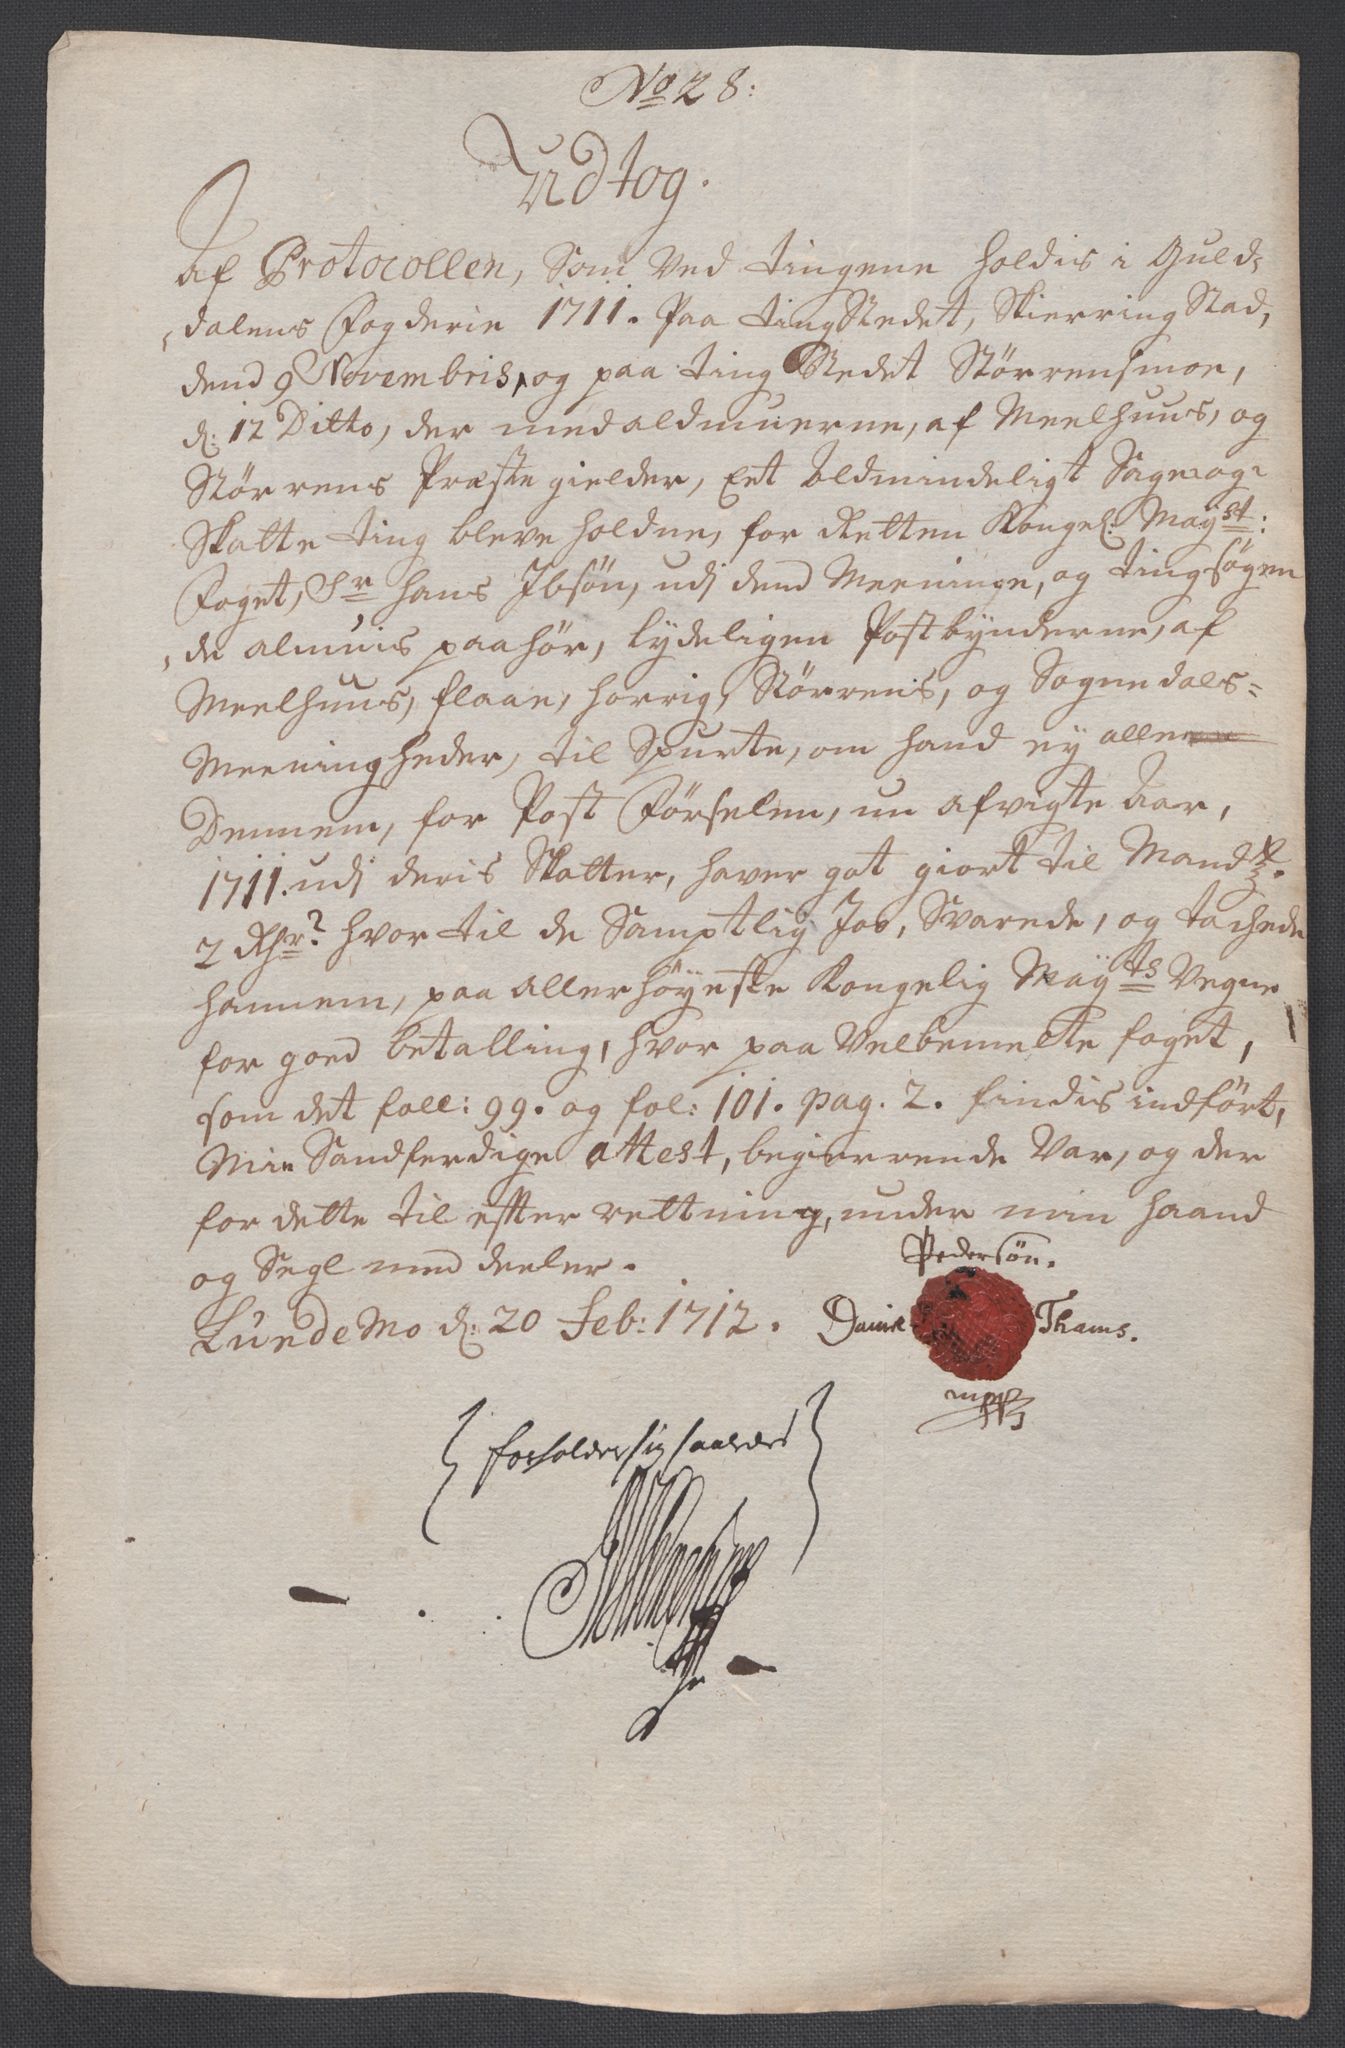 No 28:
Udtog.
Af Protocollen, Som Ved tingene holdis i Guld-
dalens Fogderie 1711. Paa tingStedet, SkierringStad,
dend 9 Novembris, og paa ting Stedet Störrensmoe,
d: 12 Ditto, der med aldmuerne, af Meelhuus, og
Störrens Præste gielder, Eet Aldmindeligt Sage og
Skatte ting bleve holdne, for Retten Kongel: Mayst:
Foget, Sr hans Ibsön, udj dend Meeninge, og tingsögen
de almuis paahör, lydeligen Postbynderne, af
Meelhuus, flaae, horrig, Störrens, og Sognedals-
Meeningheder, til Spurte, om hand ey alle
Dennem, for Post Förselen, nu afvigte Aar,
1711. udj deris Skatter, haver got giort til Mand
2 Rdr? hvor til de Samptlig Joe, Svarede, og tachede
hannem, paa allerhöyeste Kongelig Mayts Vegne
for goed betalling, hvor paa Velbemelte foget,
som det foll: 99. og fol: 101. pag. 2. findis indfört,
Min Sandferdige attest, begierrende Var, og der
for dette til effter rettning, under min haand
og Segl med deeler.
LundeMo d: 20 Feb: 1712.
Daniel Pedersön Thams.
mpp
forholder sig saaledes